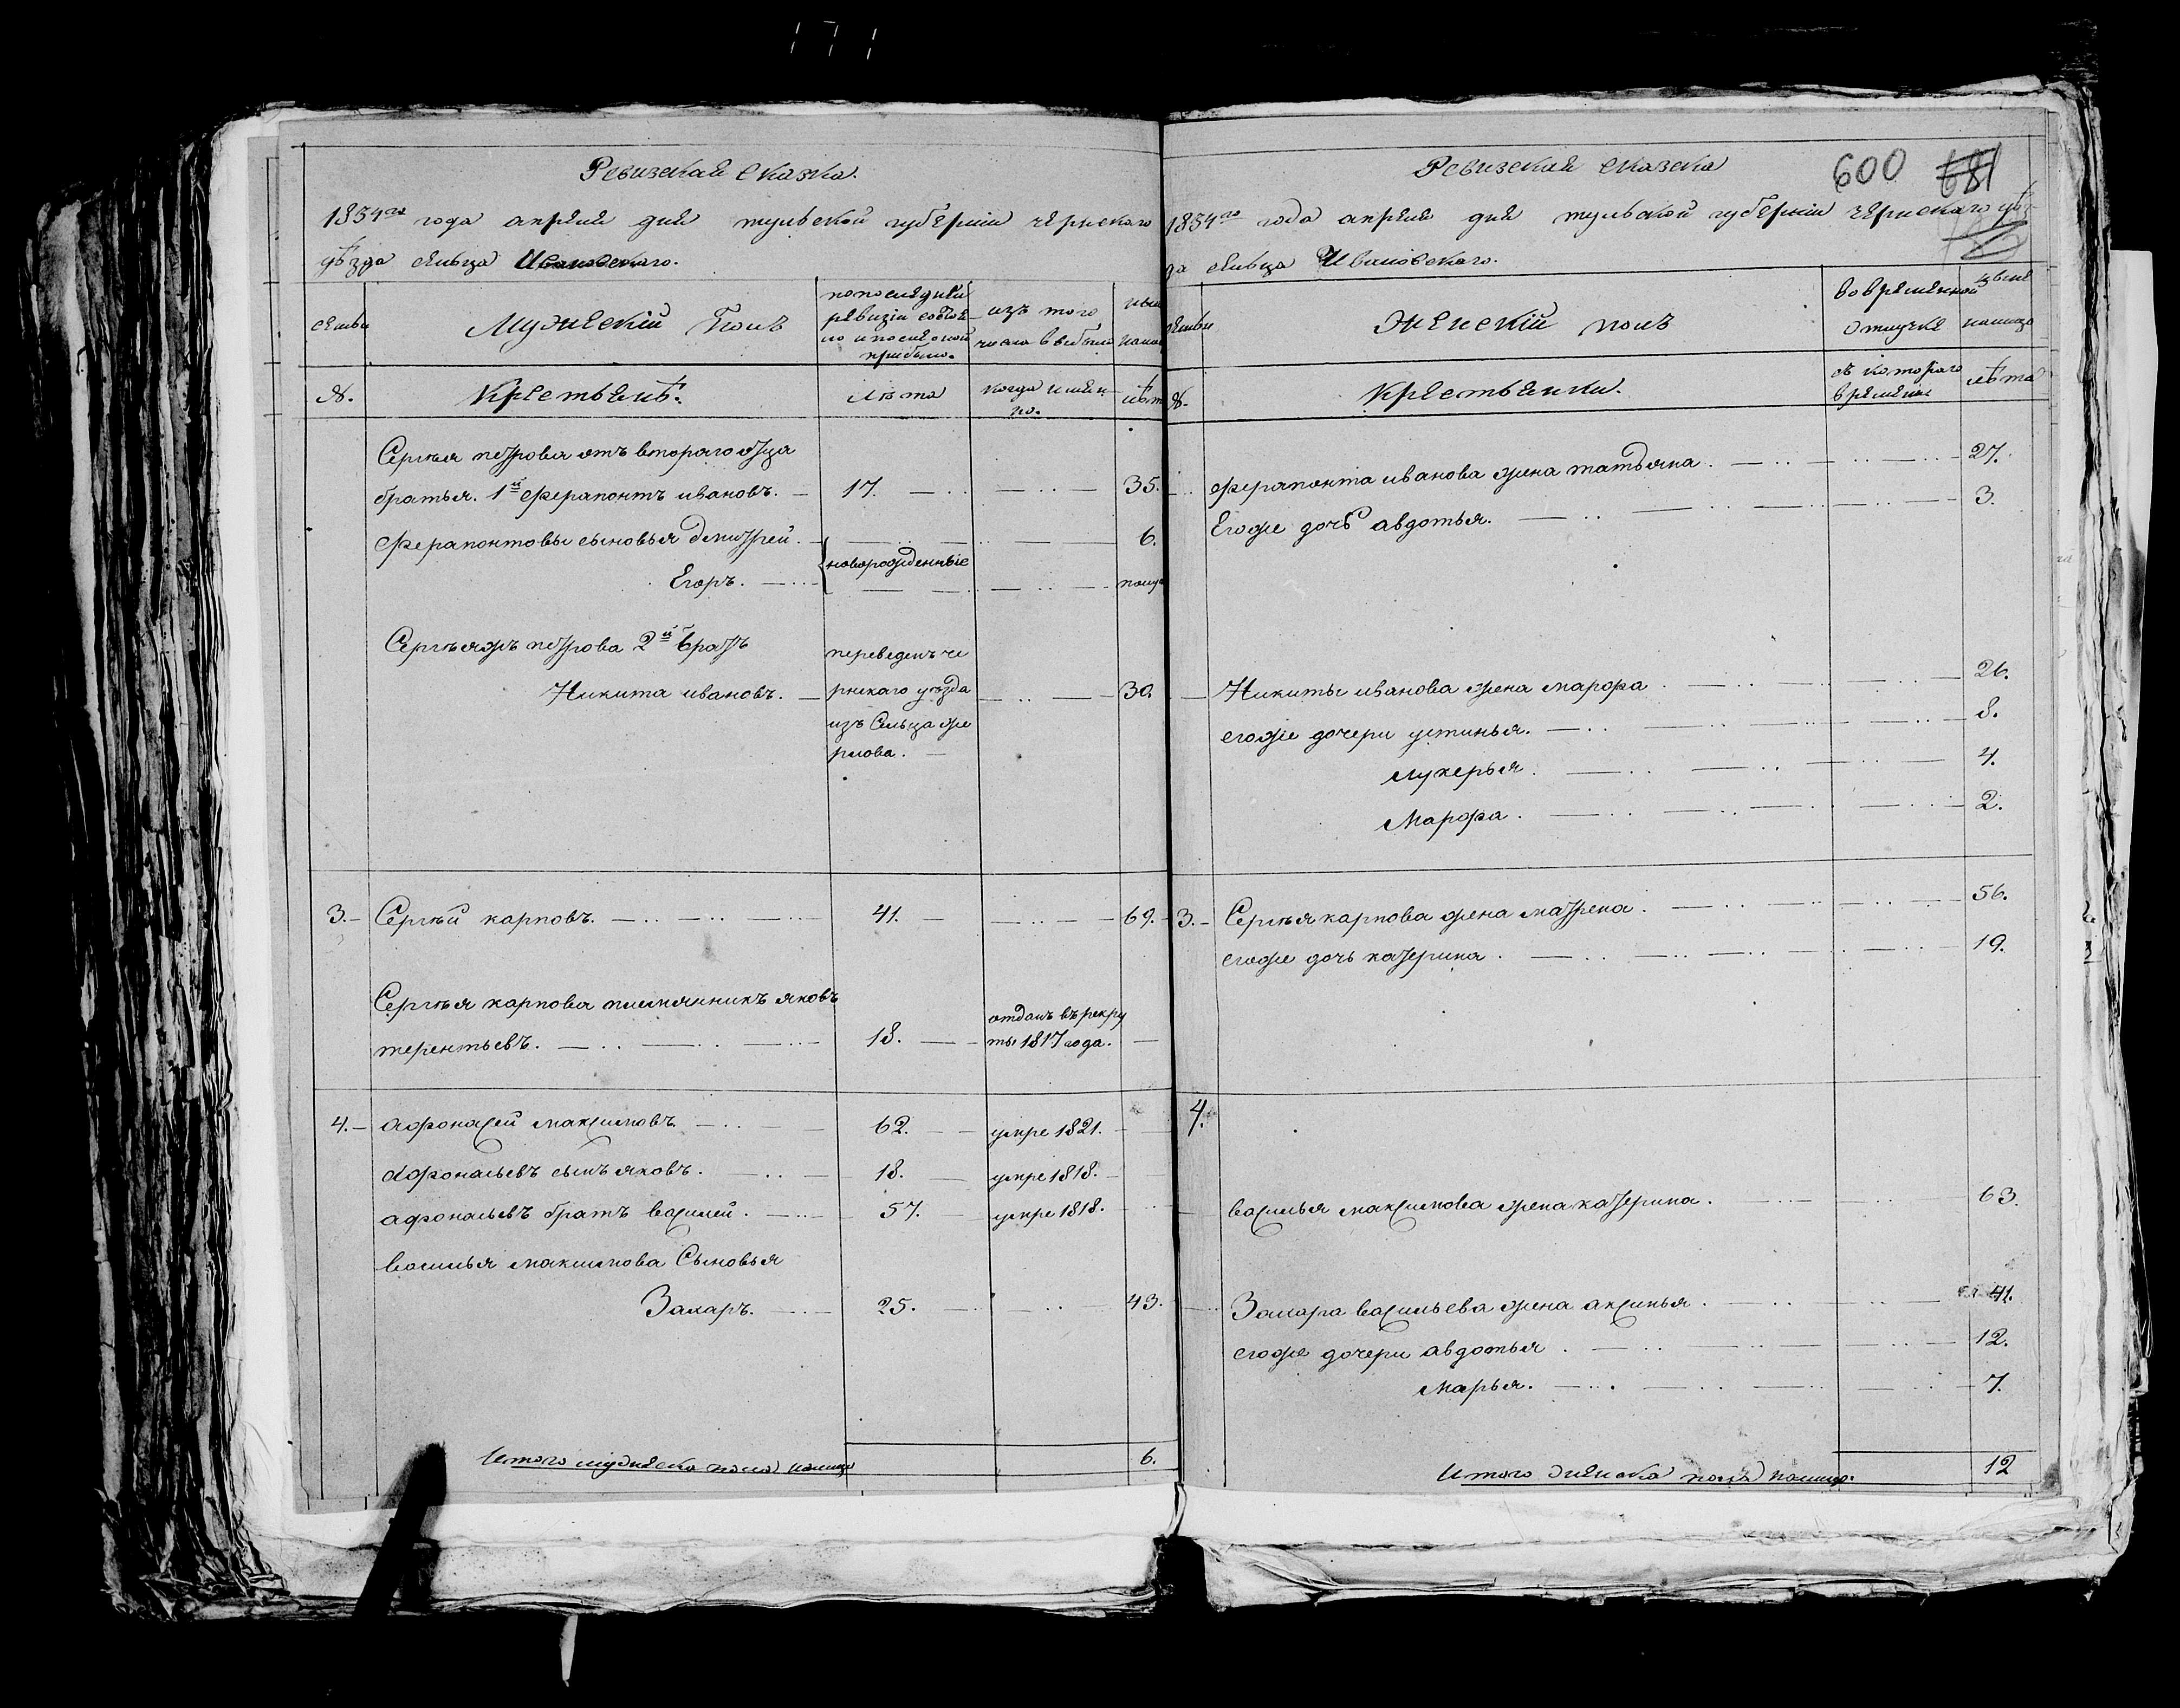 171
Ревизская сказка.
1834го года апреля дня тульской губерніи чернскаго
уѣзда сельца Ивановскаго.
семьи
Мужескій полъ
по последней
ревизіи состоя
ло и после оной
прибыло.
изъ того
числа выбыло
ныне
налиц
№.
Крестьянѣ.
Лѣта
когда имен
но.
лѣт
Сергѣя петрова отъ втораго отца
братья. 1й Ферапонтъ ивановъ. 17. 35.
Ферапонтовы сыновья дмитрей. 6.
новорожденные
Егоръ. полуго
Сергѣяжъ петрова 2й братъ
Никита ивановъ. 30.
переведенъ че
рнскаго уѣзда
изъ Сельца же
рлова.
3. Сергѣй карповъ. 41. 69.
Сергѣя карпова племянникъ яковъ
терентьевъ. 18.
отданъ въ рекру
ты 1817 года.
4. Афонасей максимовъ 62. умре 1821.
Афонасьевъ сынъ яковъ. 18. умре 1818.
афонасьевъ братъ василей. 57. умре 1818.
василья максимова Сыновья
Захаръ. 25. 43.
Итого мужеска пола налицо 6.
Ревизская сказка
600 681
1834го года апреля дня тульской губерніи чернскаго уѣз
да сельца Ивановскаго.
семьи
Женскій полъ
во временной
отлучке
ныне
налицо
№.
Крестьянки.
съ котораго
времени
лѣта
Ферапонта иванова жена татьяна. 27.
Егоже дочь авдотья. 3.
Никиты иванова жена марфа 26.
егоже дочери устинья. 8.
Лукерья. 4.
Марфа. 2.
3. Сергѣя карпова жена матрена. 56.
егоже дочь катерина. 19.
4.
василья максимова жена катерина. 63.
Захара васильева жена аксинья. 41.
егоже дочери авдотья. 12.
марья. 7.
Итого женска пола налицо. 12